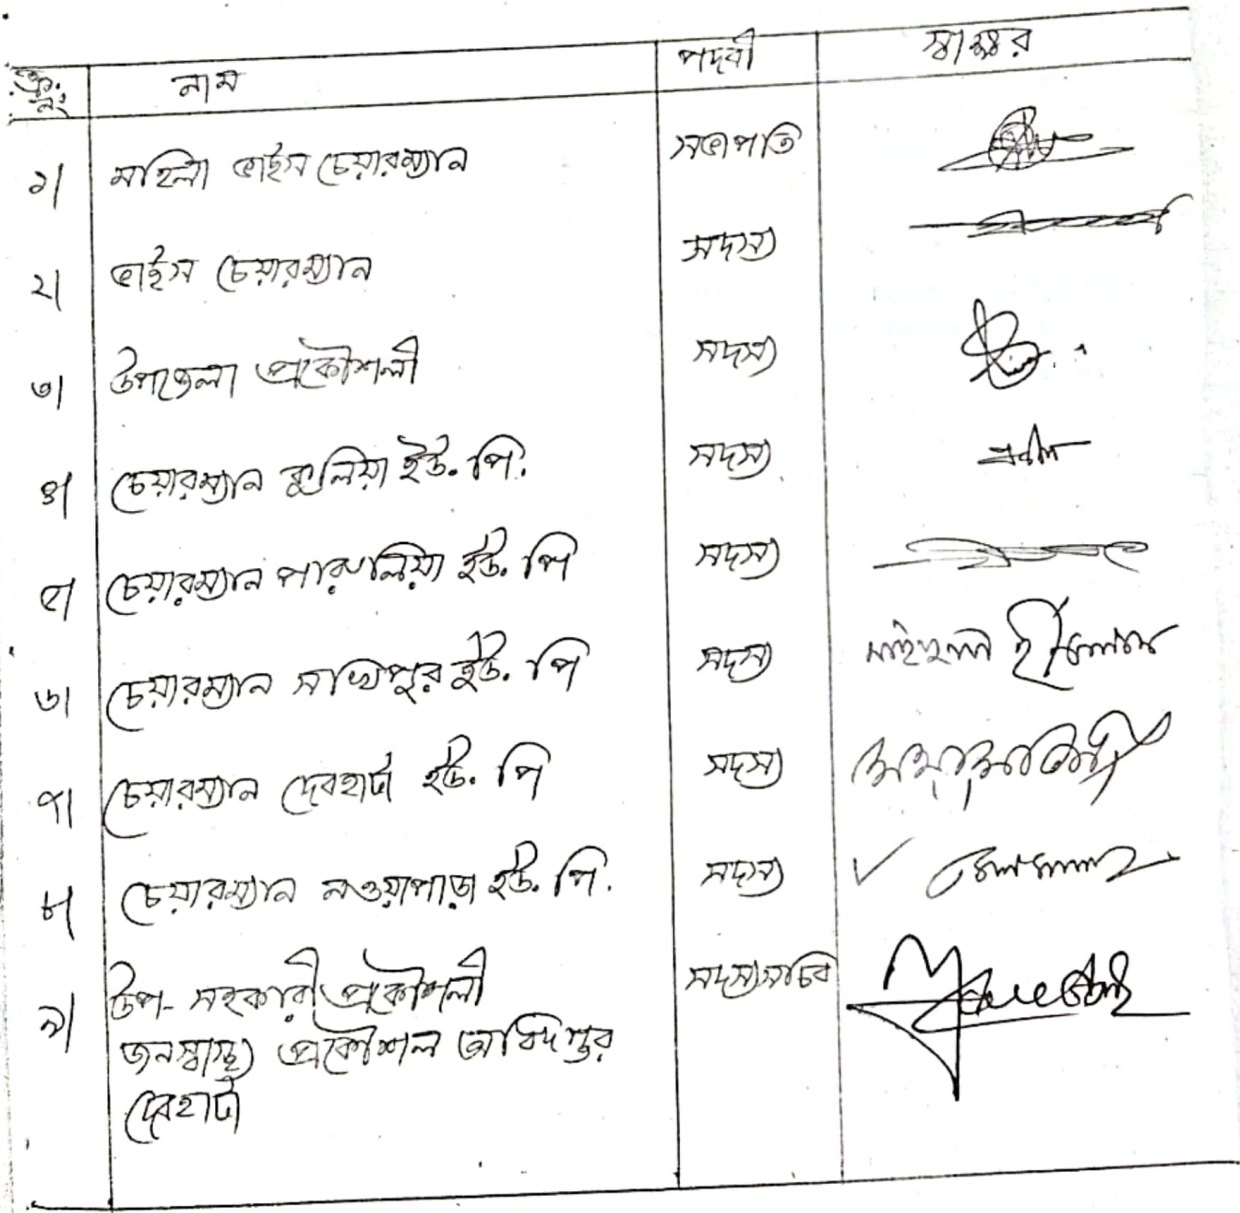 ক্র. নাম পদবী স্বাক্ষর
নং
১| মহিলা ভাইস চেয়ারম্যান সভাপতি
২| ভাইস চেয়ারম্যান সদস্য
৩| উপজেলা প্রকৌশলী সদস্য
৪| চেয়ারম্যান কুলিয়া ইউ. পি. সদস্য
৫| চেয়ারম্যান পারুলিয়া ইউ. পি সদস্য
৬| চেয়ারম্যান সখিপুর ইউ. পি সদস্য
৭| চেয়ারম্যান দেবহাটা ইউ. পি সদস্য
৮| চেয়ারম্যান নওয়াপাড়া ইউ. পি. সদস্য
৯| উপ-সহকারী প্রকৌশলী সদস্য সচিব
জনস্বাস্থ্য প্রকৌশল অধিদপ্তর
দেবহাটা